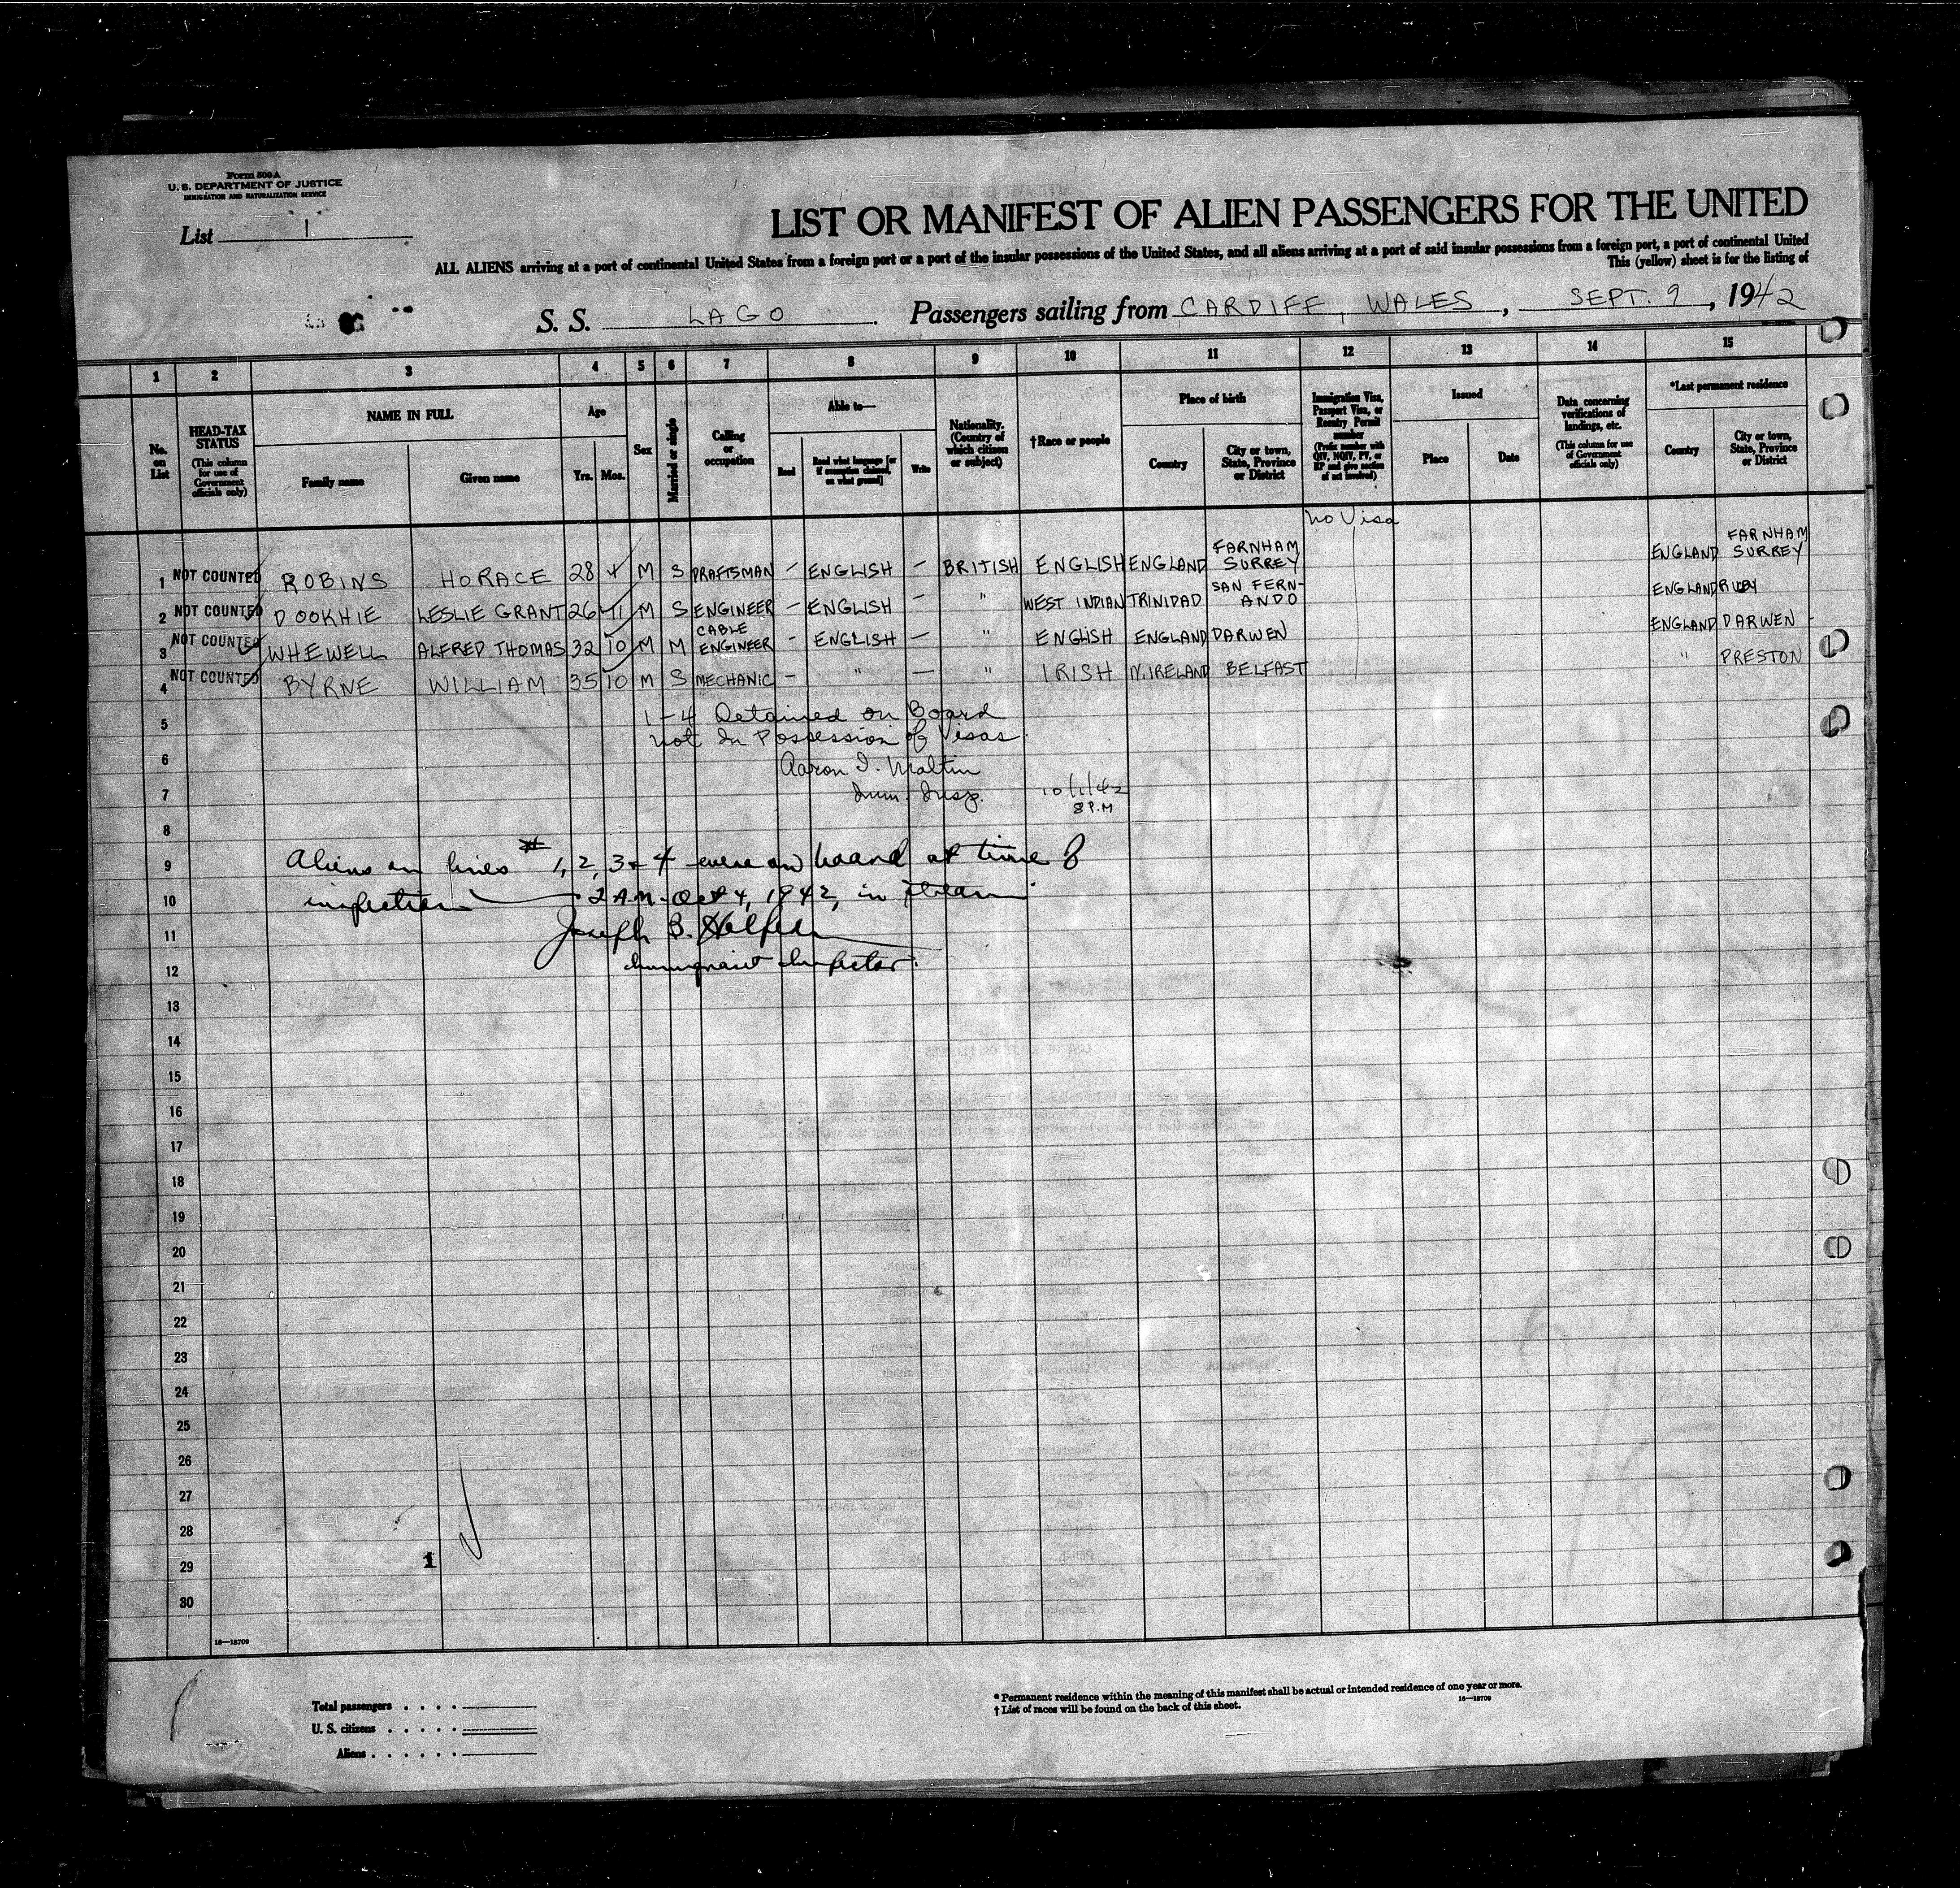 Form 500A
U. S. DEPARTMENT OF JUSTICE
IMMIGRATION AND NATURALIZATION SERVICE
List 1
LIST OR MANIFEST OF ALIEN PASSENGERS FOR THE UNITED
ALL ALIENS arriving at a port of continental United States from a foreign port or a port of the insular possessions of the United States, and all aliens arriving at a port of said insular possessions from a foreign port, a port of continental United
This (yellow) sheet is for the listing of
S. S. LAGO Passengers sailing from CARDIFF, WALES, SEPT. 9, 1942
1 2 3 4 5 6 7 8 9 10 11 12 13 14 15
No. on List
HEAD-TAX STATUS (This column for use of Government officials only)
NAME IN FULL
Family name
Given name
Age
Yrs.
Mos.
Sex
Married or single
Calling or occupation
Able to—
Read
Read what language [or if exemption claimed, on what ground]
Write
Nationality. (Country of which citizen or subject)
†Race or people
Place of birth
Country
City or town, State, Province or District
Immigration Visa, Passport Visa, or Reentry Permit number (Prefix number with QIV, NQIV, PV, or RP and give section of act involved)
Issued
Place
Date
Data concerning verifications of landings, etc. (This column for use of Government officials only)
*Last permanent residence
Country
City or town, State, Province or District
No Visa
1 NOT COUNTED ROBINS HORACE 28 4 M S DRAFTSMAN – ENGLISH – BRITISH ENGLISH ENGLAND FARNHAM SURREY ENGLAND FARNHAM SURREY
2 NOT COUNTED DOOKHIE LESLIE GRANT 26 11 M S ENGINEER – ENGLISH – " WEST INDIAN TRINIDAD SAN FERNANDO ENGLAND
3 NOT COUNTED WHEWELL ALFRED THOMAS 32 10 M M CABLE ENGINEER – ENGLISH – " ENGLISH ENGLAND DARWEN ENGLAND DARWEN
4 NOT COUNTED BYRNE WILLIAM 35 10 M S MECHANIC – " – " IRISH N. IRELAND BELFAST " PRESTON
5 1–4 Detained on Board
not In Possession of Visas
6 Aaron I. Maltin
7 Imm. Insp. 10/1/42
8 P.M
8
9 Aliens on lines # 1, 2, 3 & 4 were on board at time of
10 inspection — 2 A.M. Oct 4, 1942, in stream
11 Joseph B.
12 Immigrant Inspector.
13
14
15
16
17
18
19
20
21
22
23
24
25
26
27
28
29 1
30
16—18709
Total passengers . . . .
U. S. citizens . . . . .
Aliens . . . . . .
* Permanent residence within the meaning of this manifest shall be actual or intended residence of one year or more.
† List of races will be found on the back of this sheet.
16—18709